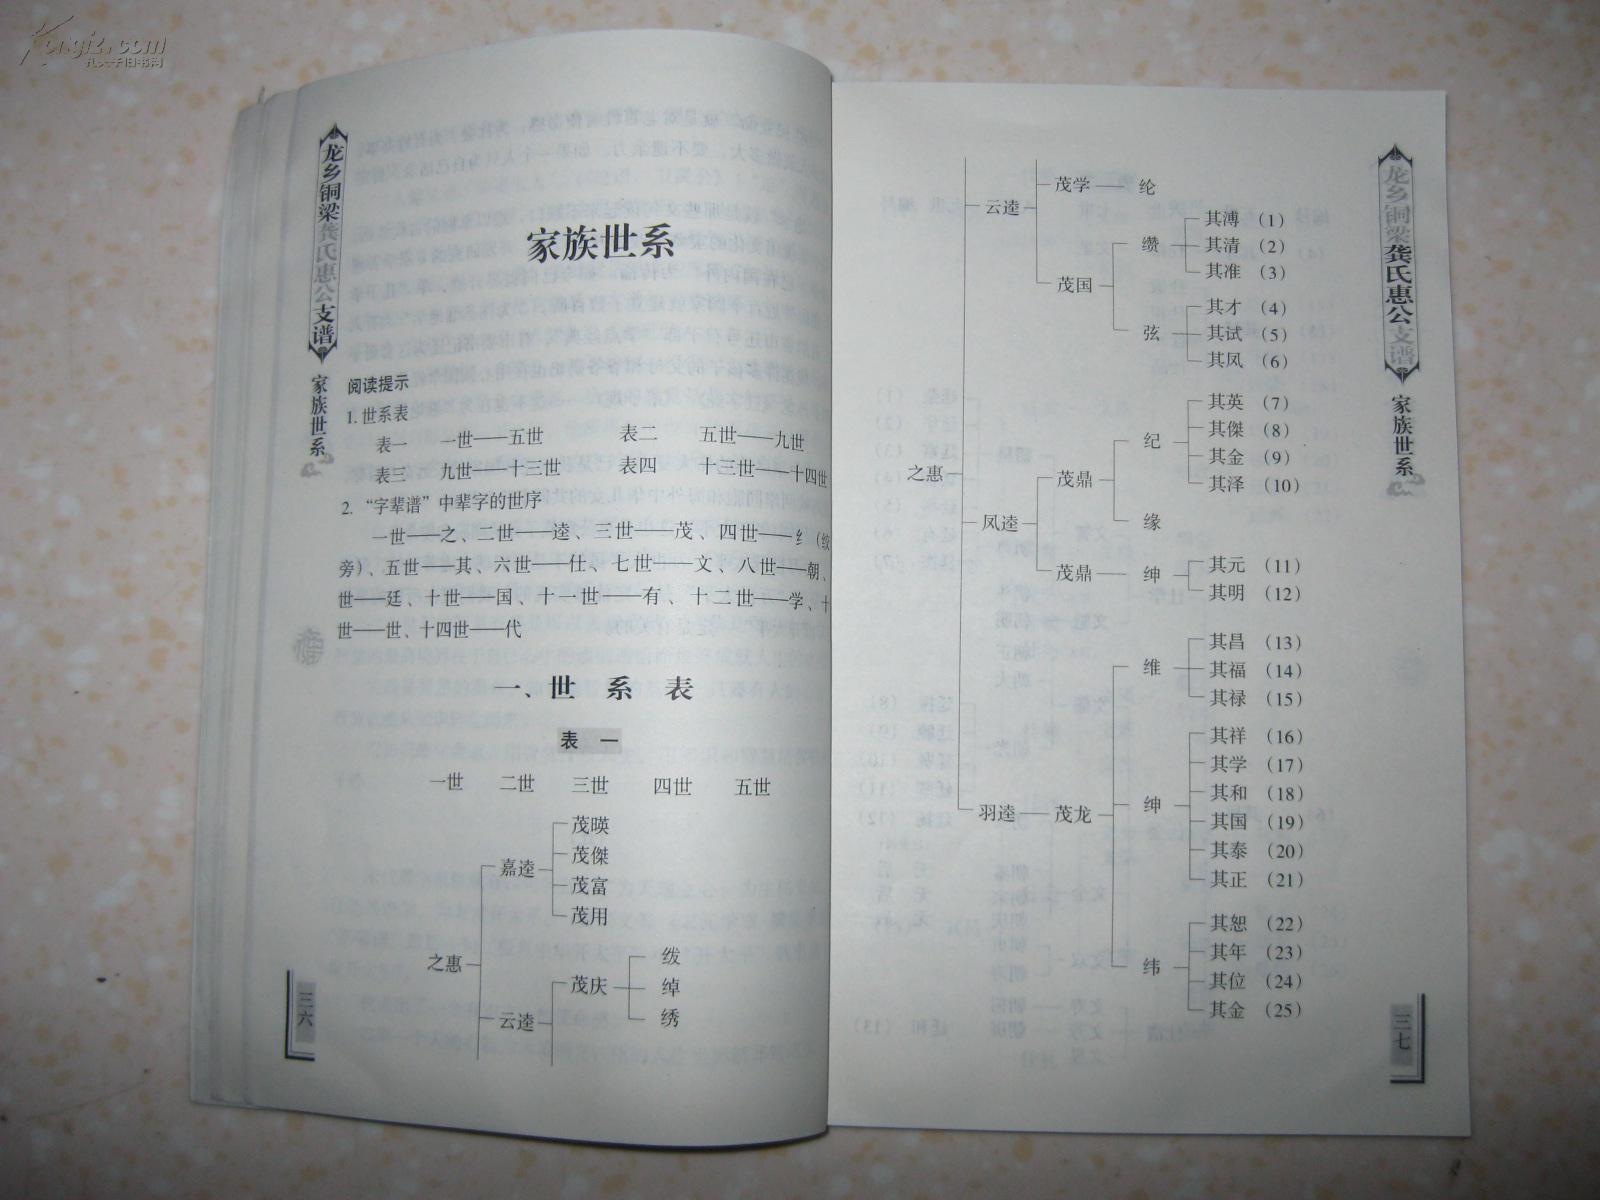 Kongfz.com
孔夫子旧书网
龙乡铜梁龚氏惠公支谱
家族世系
家族世系
阅读提示
1. 世系表
表一 一世——五世 表二 五世——九世
表三 九世——十三世 表四 十三世——十四世
2. “字辈谱”中辈字的世序
一世——之、二世——逵、三世——茂、四世——纟（绞
旁）、五世——其、六世——仕、七世——文、八世——朝、
世——廷、十世——国、十一世——有、十二世——学、十
世——世、十四世——代
一、世系表
表一
一世 二世 三世 四世 五世
茂暎
茂傑
嘉逵
茂富
茂用
之惠
绂
茂庆 绰
云逵 绣
三六
茂学 纶
云逵
其溥 （1）
缵 其清 （2）
其准 （3）
茂国
其才 （4）
弦 其试 （5）
其凤 （6）
其英 （7）
其傑 （8）
纪
其金 （9）
其泽 （10）
之惠
茂鼎
凤逵 缘
茂鼎 绅 其元 （11）
其明 （12）
其昌 （13）
维 其福 （14）
其禄 （15）
其祥 （16）
其学 （17）
其和 （18）
羽逵 茂龙 绅
其国 （19）
其泰 （20）
其正 （21）
其恕 （22）
其年 （23）
纬
其位 （24）
其金 （25）
龙乡铜梁龚氏惠公支谱
家族世系
三七